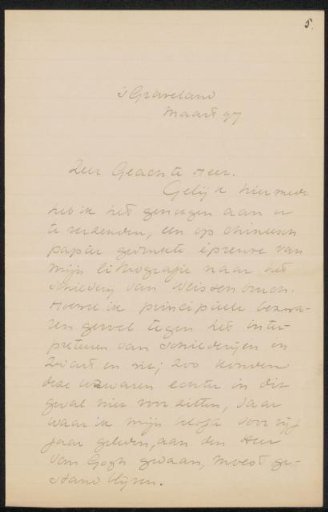 5.
's Graveland
Maart 97
Zeer Geachte Heer.
Gelijk hiermede
heb ik het genoegen aan u
te verzenden, een op chineesch
papier gedrukte épreuve van
mijn lithografie naar het
schilderij van Weissenbruch.
Hoewel ik principieele bezwa-
ren gevoel tegen het inter-
preteeren van schilderijen en
zwart en wit, zoo konden
deze bezwaren echter in dit
geval niet voorzitten, daar
waar ik mijn belofte voor vijf
jaar geleden, aan den Heer
van Gogh gedaan, moest ge-
stand blijven.